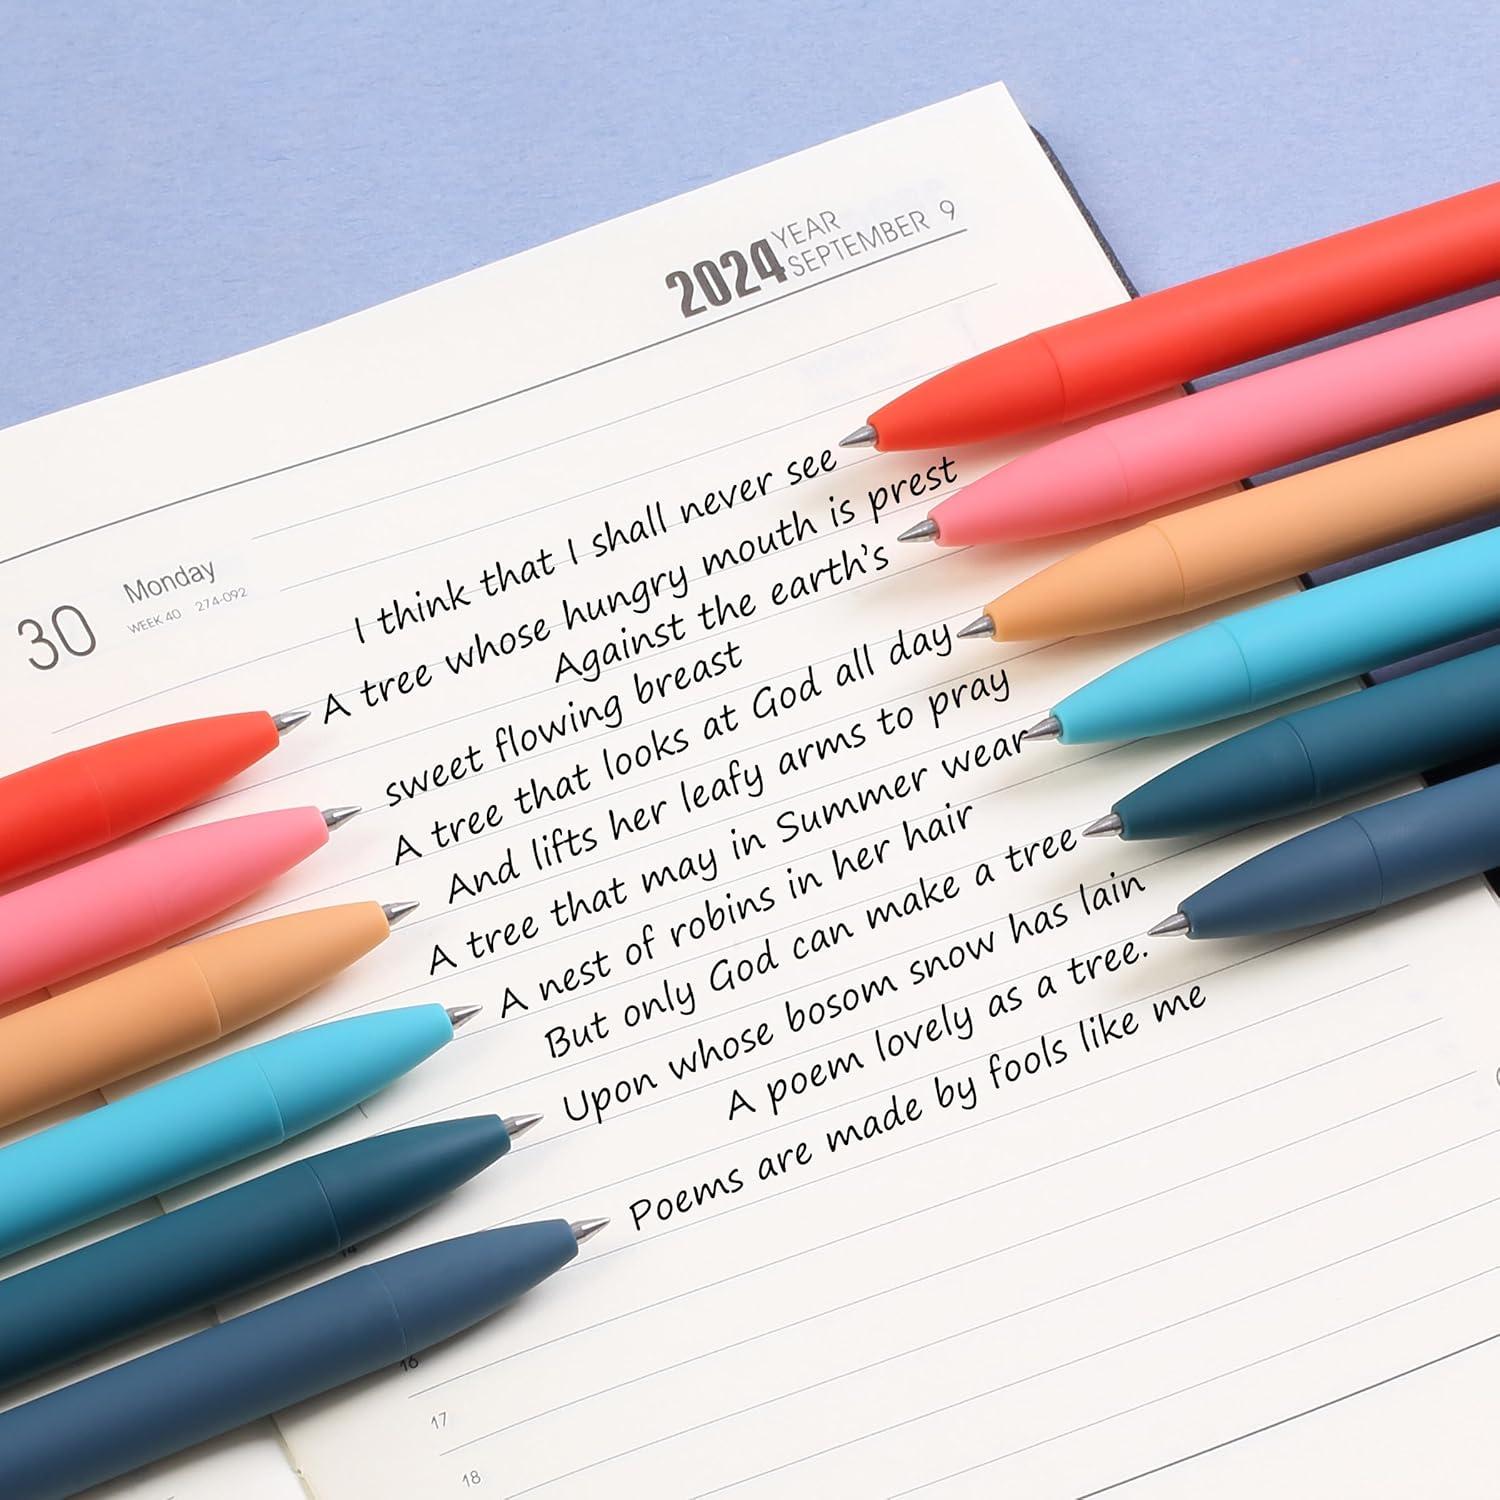 2024 YEAR
SEPTEMBER 9
30 Monday
WEEK 40 274-092
I think that I shall never see
A tree whose hungry mouth is prest
Against the earth's
sweet flowing breast
A tree that looks at God all day
And lifts her leafy arms to pray
A tree that may in Summer wear
A nest of robins in her hair
But only God can make a tree
Upon whose bosom snow has lain
A poem lovely as a tree.
Poems are made by fools like me
14
16
17
18